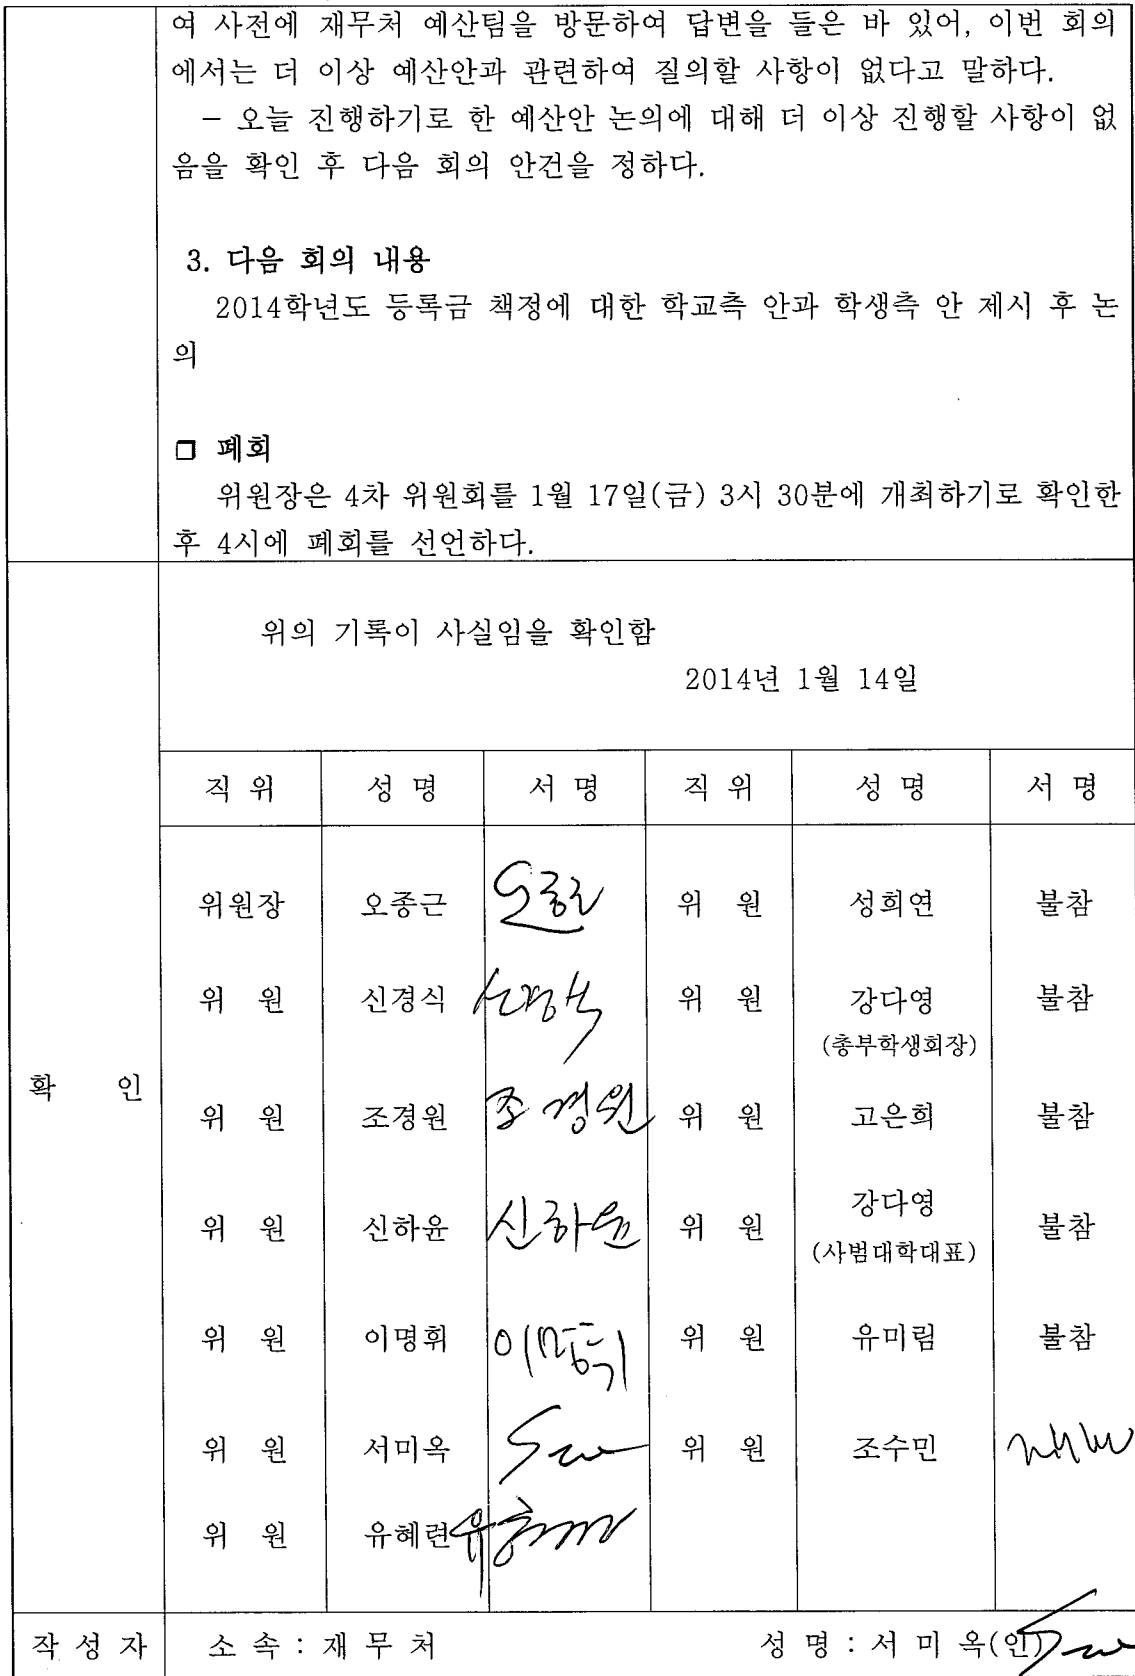 여 사전에 재무처 예산팀을 방문하여 답변을 들은 바 있어, 이번 회의
에서는 더 이상 예산안과 관련하여 질의할 사항이 없다고 말하다.
- 오늘 진행하기로 한 예산안 논의에 대해 더 이상 진행할 사항이 없
음을 확인 후 다음 회의 안건을 정하다.
3. 다음 회의 내용
2014학년도 등록금 책정에 대한 학교측 안과 학생측 안 제시 후 논
의
□ 폐회
위원장은 4차 위원회를 1월 17일(금) 3시 30분에 개최하기로 확인한
후 4시에 폐회를 선언하다.
위의 기록이 사실임을 확인함
2014년 1월 14일
확 인
직 위 성 명 서 명 직 위 성 명 서 명
위원장 오종근 위 원 성희연 불참
위 원 신경식 위 원 강다영 불참
(총부학생회장)
위 원 조경원 조경원 위 원 고은희 불참
위 원 신하윤 신하윤 위 원 강다영 불참
(사범대학대표)
위 원 이명휘 이명휘 위 원 유미림 불참
위 원 서미옥 위 원 조수민
위 원 유혜련
작 성 자 소 속 : 재 무 처 성 명 : 서 미 옥(인)